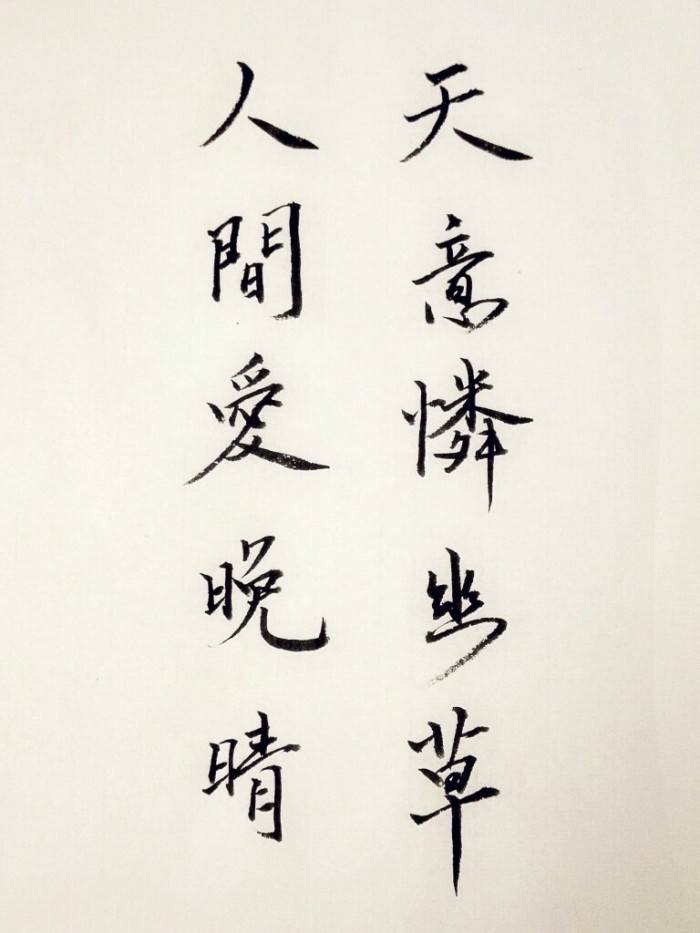 天意憐幽草
人間愛晚晴